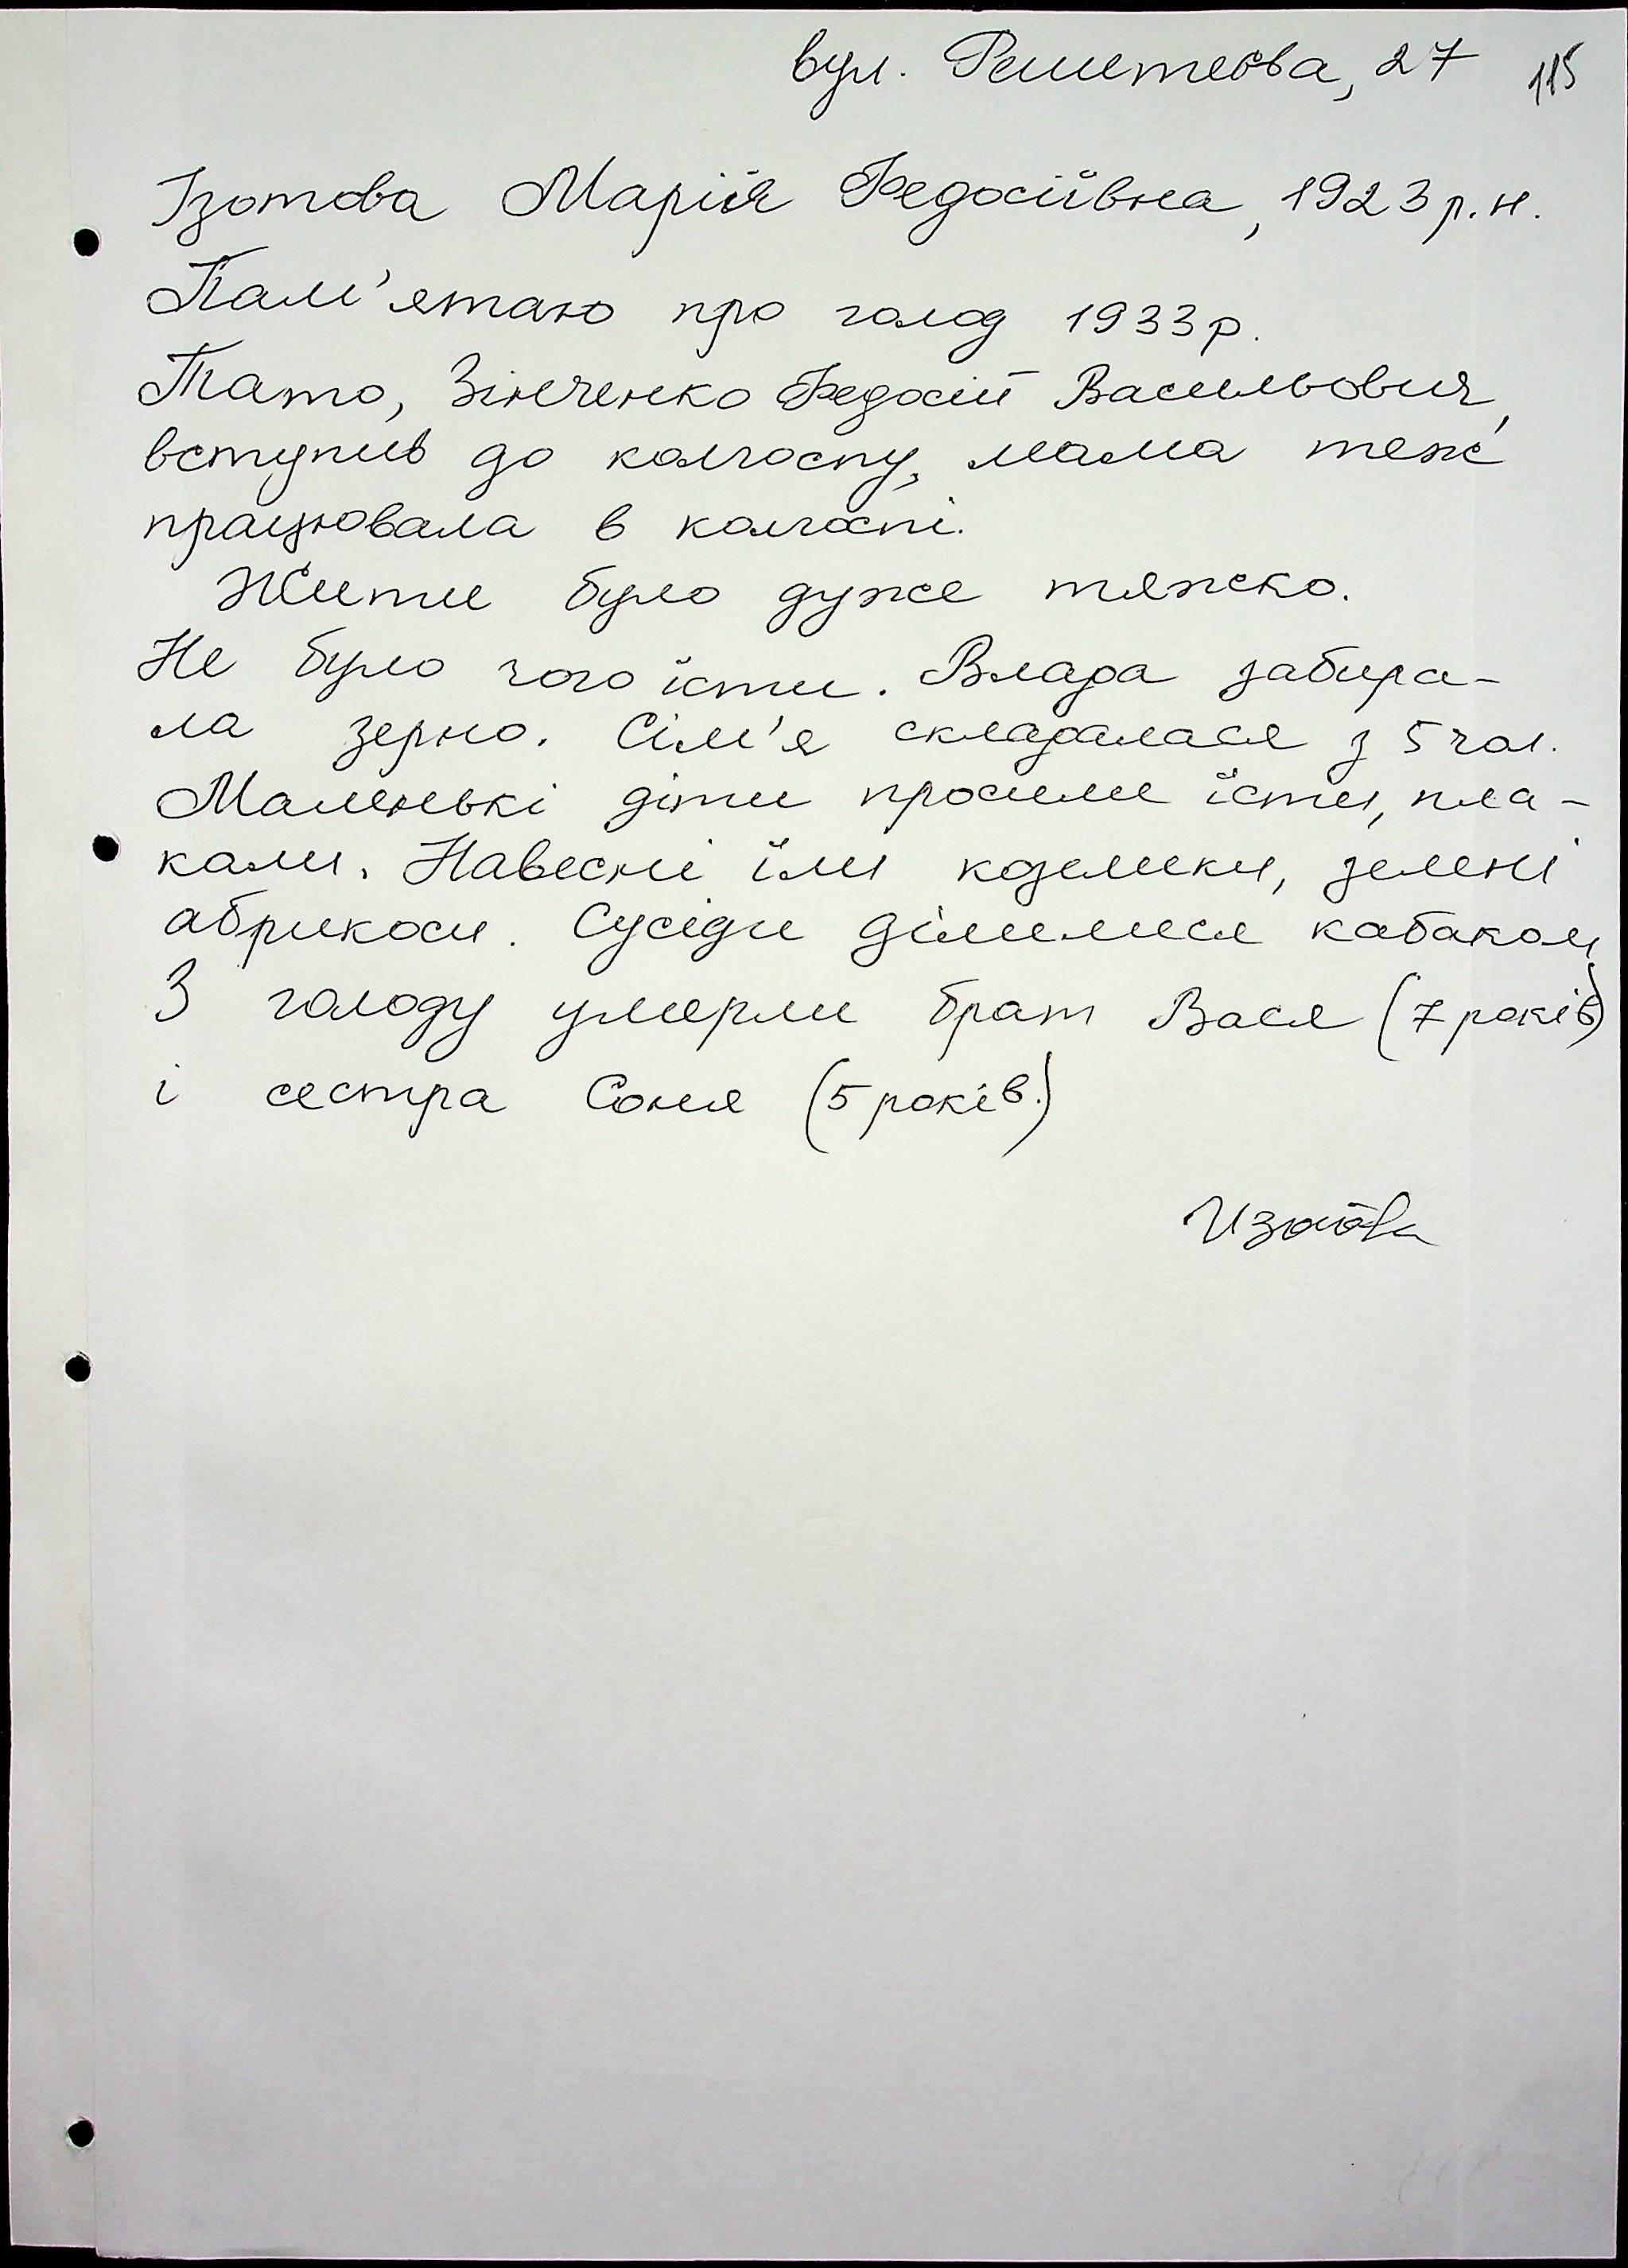 вул. Решетєєва, 27 115
Ізотова Марія Федосіївна, 1923 р.н.
Пам'ятаю про голод 1933 р.
Тато, Зінченко Федосій Васильович,
вступив до колгоспу, мама теж
працювала в колгоспі.
Жити було дуже тяжко.
Не було чого їсти. Влада забира-
ла зерно. Сім'я складалася з 5 чол.
Маленькі діти просили їсти, пла-
кали. Навесні їли козелики, зелені
абрикоси. Сусіди ділилися кабаком
З голоду умерли брат Вася (7 років)
і сестра Соня (5 років.)
Изотова